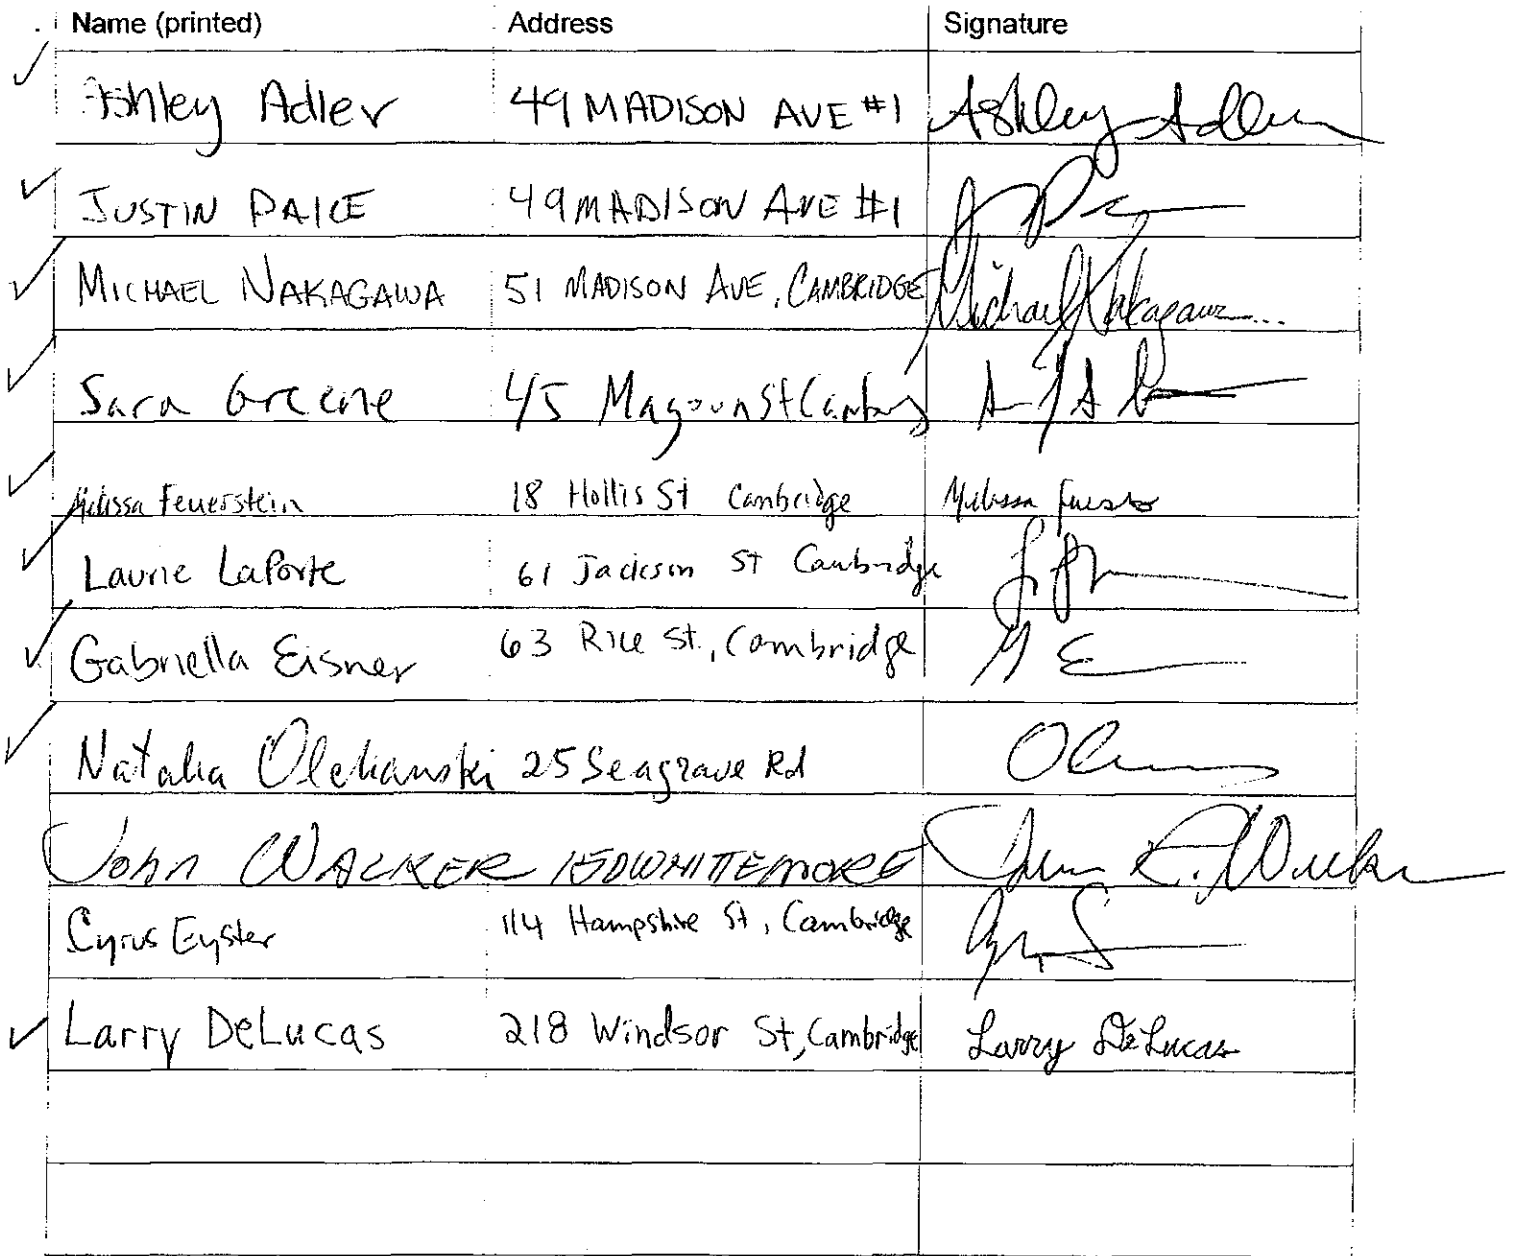 Name (printed) Address Signature
Ashley Adler 49 MADISON AVE #1 Ashley Adler
JUSTIN PAICE 49 MADISON AVE #1
MICHAEL NAKAGAWA 51 MADISON AVE, CAMBRIDGE Michael Nakagawa
Sara Greene 45 Magoun St Camb
Melissa Feuerstein 18 Hollis St Cambridge Melissa
Laurie LaPorte 61 Jackson St Cambridge
Gabriella Eisner 63 Rice St., Cambridge G E
Natalia Olchanski 25 Seagrave Rd
John WALKER 150 WHITTEMORE John R. Walker
Cyrus Eyster 114 Hampshire St, Cambridge
Larry DeLucas 218 Windsor St, Cambridge Larry DeLucas